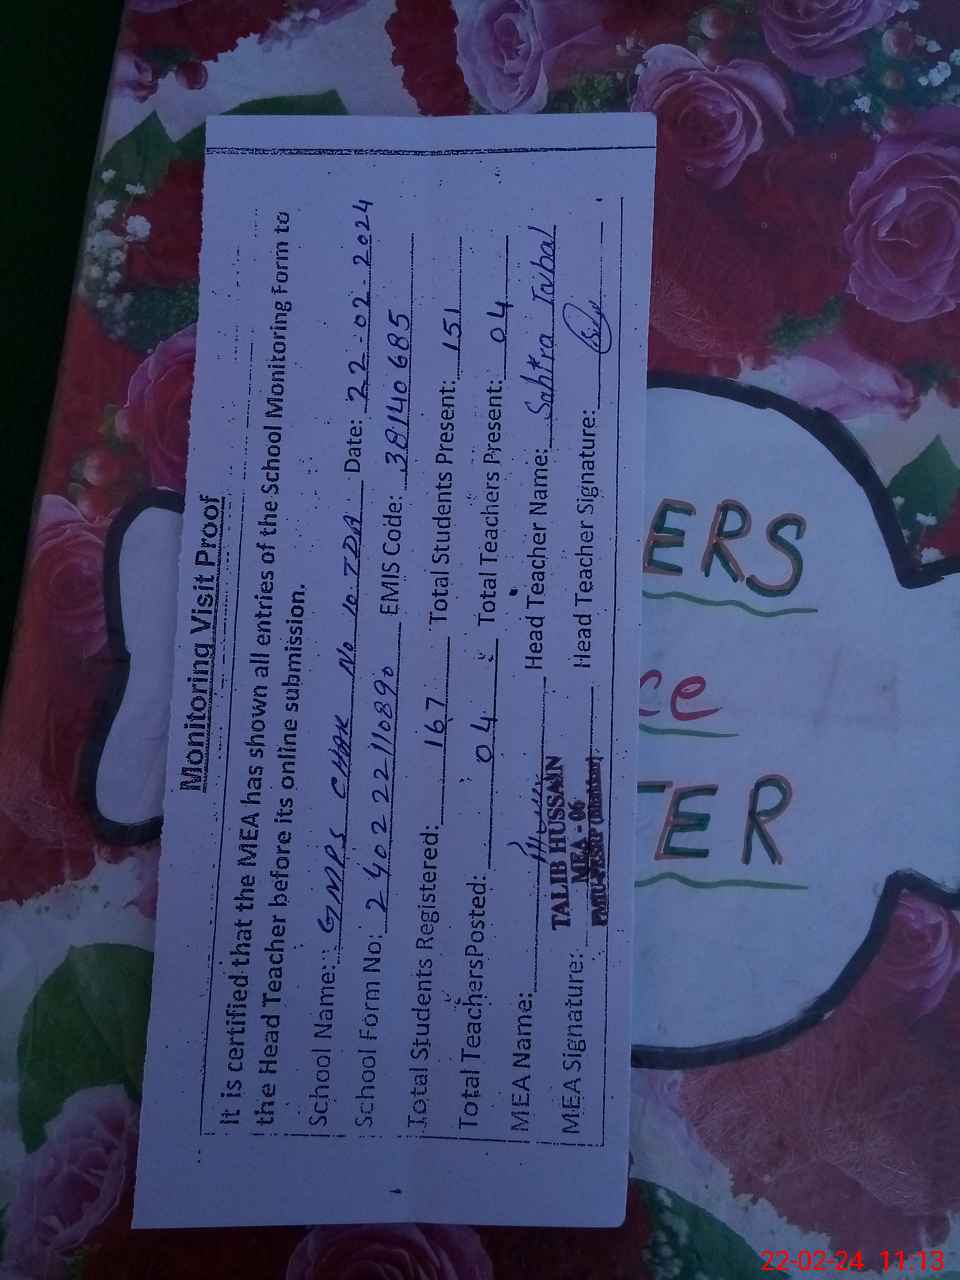 Monitoring Visit Proof
It is certified that the MEA has shown all entries of the School Monitoring Form to
the Head Teacher before its online submission.
School Name: GMPS CHAK No 10 TDA Date: 22-02-2024
School Form No: 2402 22110890 EMIS Code: 38140685
Total Students Registered: 167 Total Students Present: 151
Total Teachers Posted: 04 Total Teachers Present: 04
MEA Name: Head Teacher Name: Iqbal
TALIB HUSSAIN
MEA - 06
MEA Signature: Head Teacher Signature:
ERS
ce
TER
22-02-24 11:13